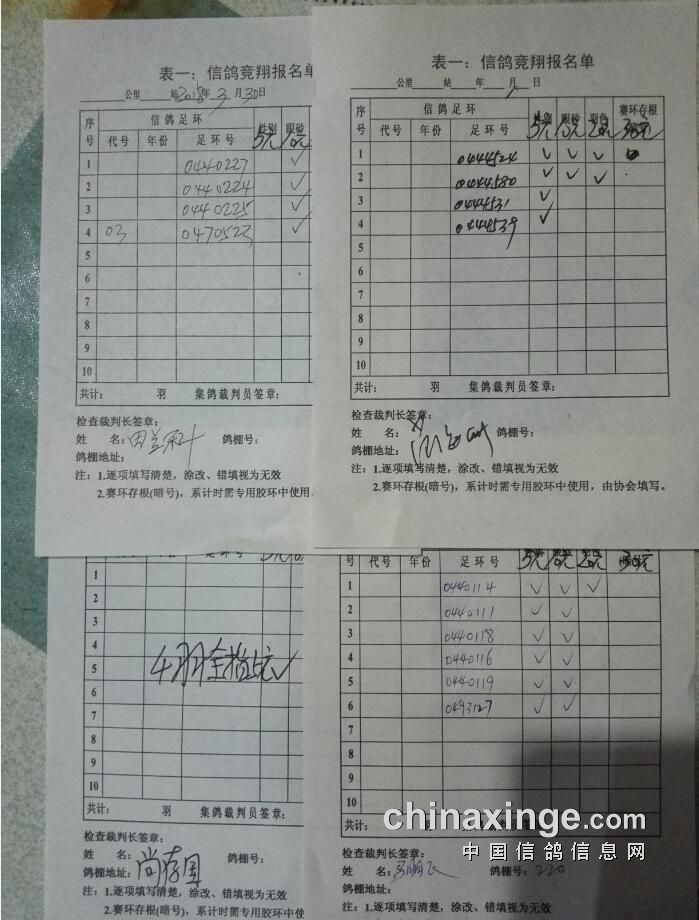 表一：信鸽竞翔报名单
公里 站 2018年 3月 30日
序号 信鸽足环 性别 眼砂
代号 年份 足环号 5元 10元
1 0440227 ✓
2 0440224 ✓
3 0440225 ✓
4 03 0470523 ✓
5
6
7
8
9
10
共计： 羽 集鸽裁判员签章：
检查裁判长签章：
姓 名： 鸽棚号：
鸽棚地址：
注：1.逐项填写清楚，涂改、错填视为无效
2.赛环存根(暗号)，系计时需专用胶环中使用，
表一：信鸽竞翔报名单
公里 站 年 月 日
序号 信鸽足环 赛环存根
代号 年份 足环号 5元 10元 20元 30元
1 0444524 ✓ ✓ ✓
2 0444580 ✓ ✓ ✓
3 0444531 ✓
4 0444539 ✓
5
6
7
8
9
10
共计： 羽 集鸽裁判员签章：
检查裁判长签章：
姓 名： 鸽棚号：
鸽棚地址：
注：1.逐项填写清楚，涂改、错填视为无效
2.赛环存根(暗号)，系计时需专用胶环中使用，由协会填写。
代号 年份 足环号
1
2
3
4
5 4羽全指5元✓
6
7
8
9
10
共计： 羽 集鸽裁判员签章：
检查裁判长签章：
姓 名：尚存国 鸽棚号：
鸽棚地址：
注：1.逐项填写清楚，涂改、错填视为无效
2.赛环存根(暗号)，系计时需专用胶环中使
号 代号 年份 足环号 5元 10元 20元 30元
1 0440114 ✓ ✓ ✓
2 0440111 ✓ ✓
3 0440118 ✓ ✓
4 0440116 ✓ ✓
5 0440119 ✓ ✓
6 0493127 ✓ ✓
7
8
9
10
共计： 羽
检查裁判长签章：
姓 名： 鸽棚号：220
鸽棚地址：
注：1.逐项填写清楚，涂改、错填视为无效
2.赛环存根(暗号)，系计时需专用胶环中使用，由协会填写
chinaxinge.com
中国信鸽信息网